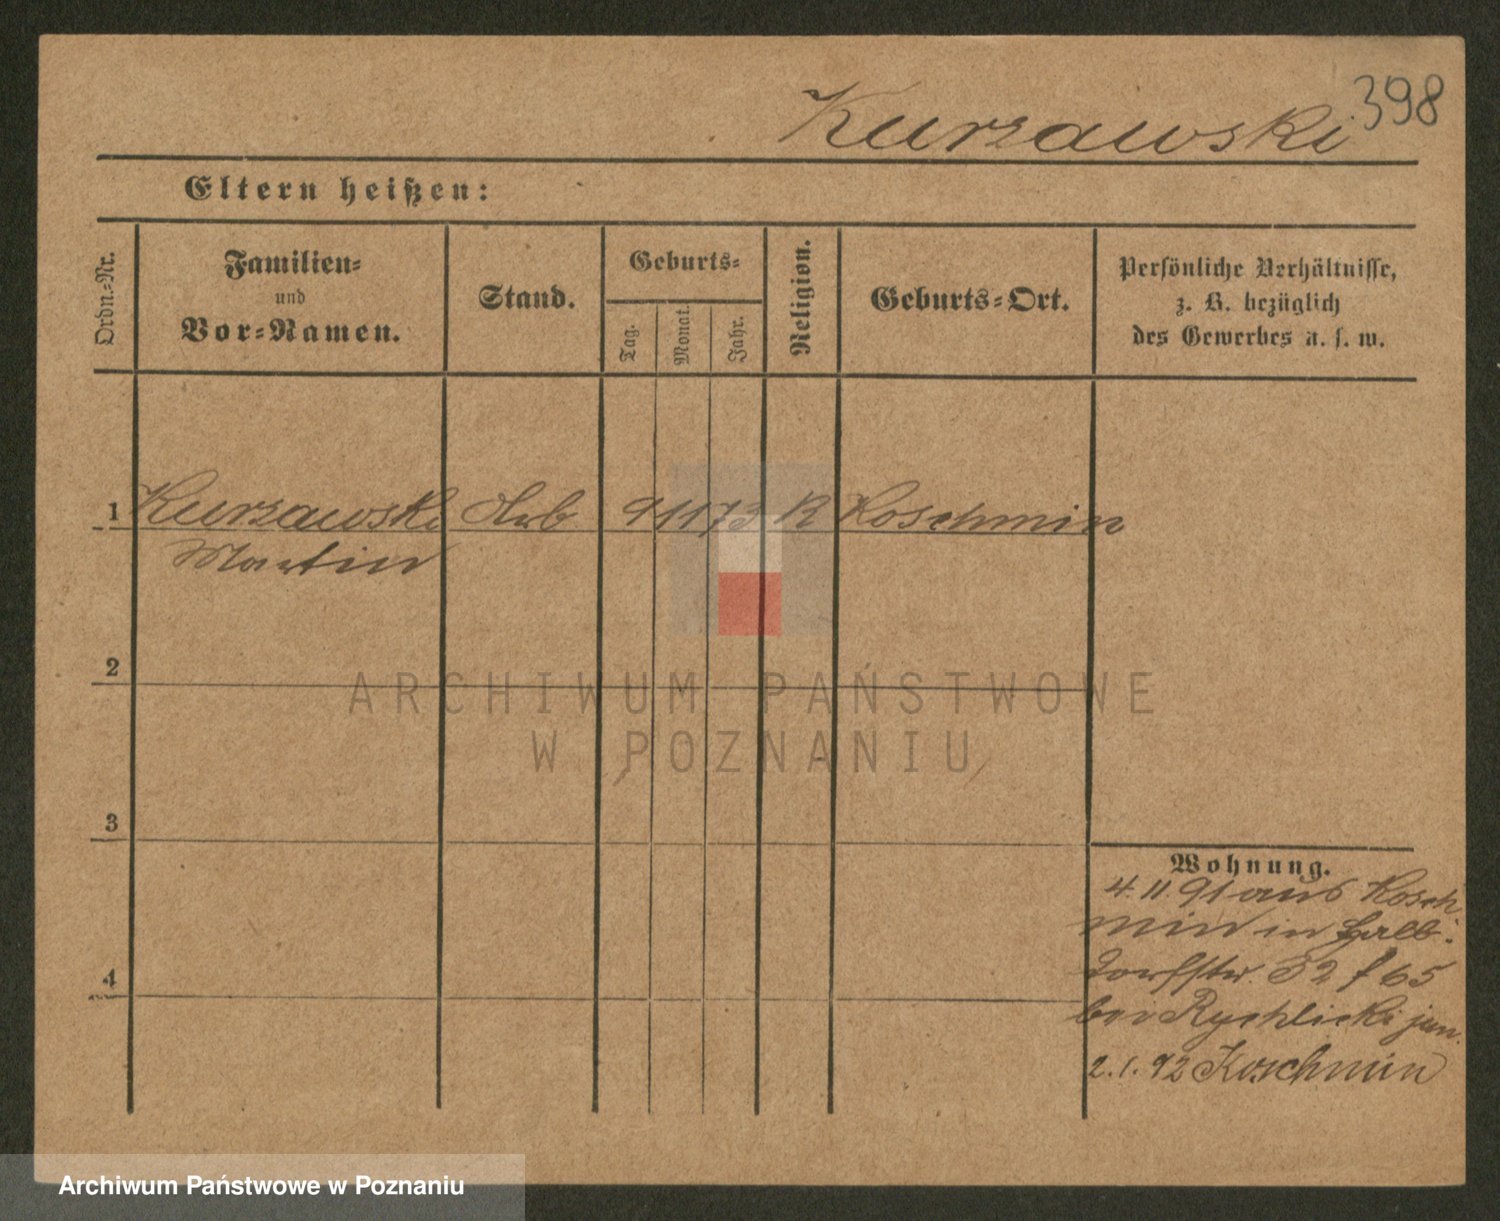 Kurzawski 398
Eltern heißen:
Ordn.-Nr.
Familien-
und
Vor-Namen.
Stand.
Geburts-
Tag.
Monat.
Jahr.
Religion.
Geburts-Ort.
Persönliche Verhältnisse,
z. B. bezüglich
des Gewerbes u. s. w.
1 Kurzawski Arb 9 11 73 K Koschmin
Martin
2
3
4
Wohnung.
4.11.91 aus Kosch
min in Halb-
dorfstr. 32 f 65
bei Rychlicki jun.
2.1.92 Koschmin
ARCHIWUM PAŃSTWOWE
W POZNANIU
Archiwum Państwowe w Poznaniu